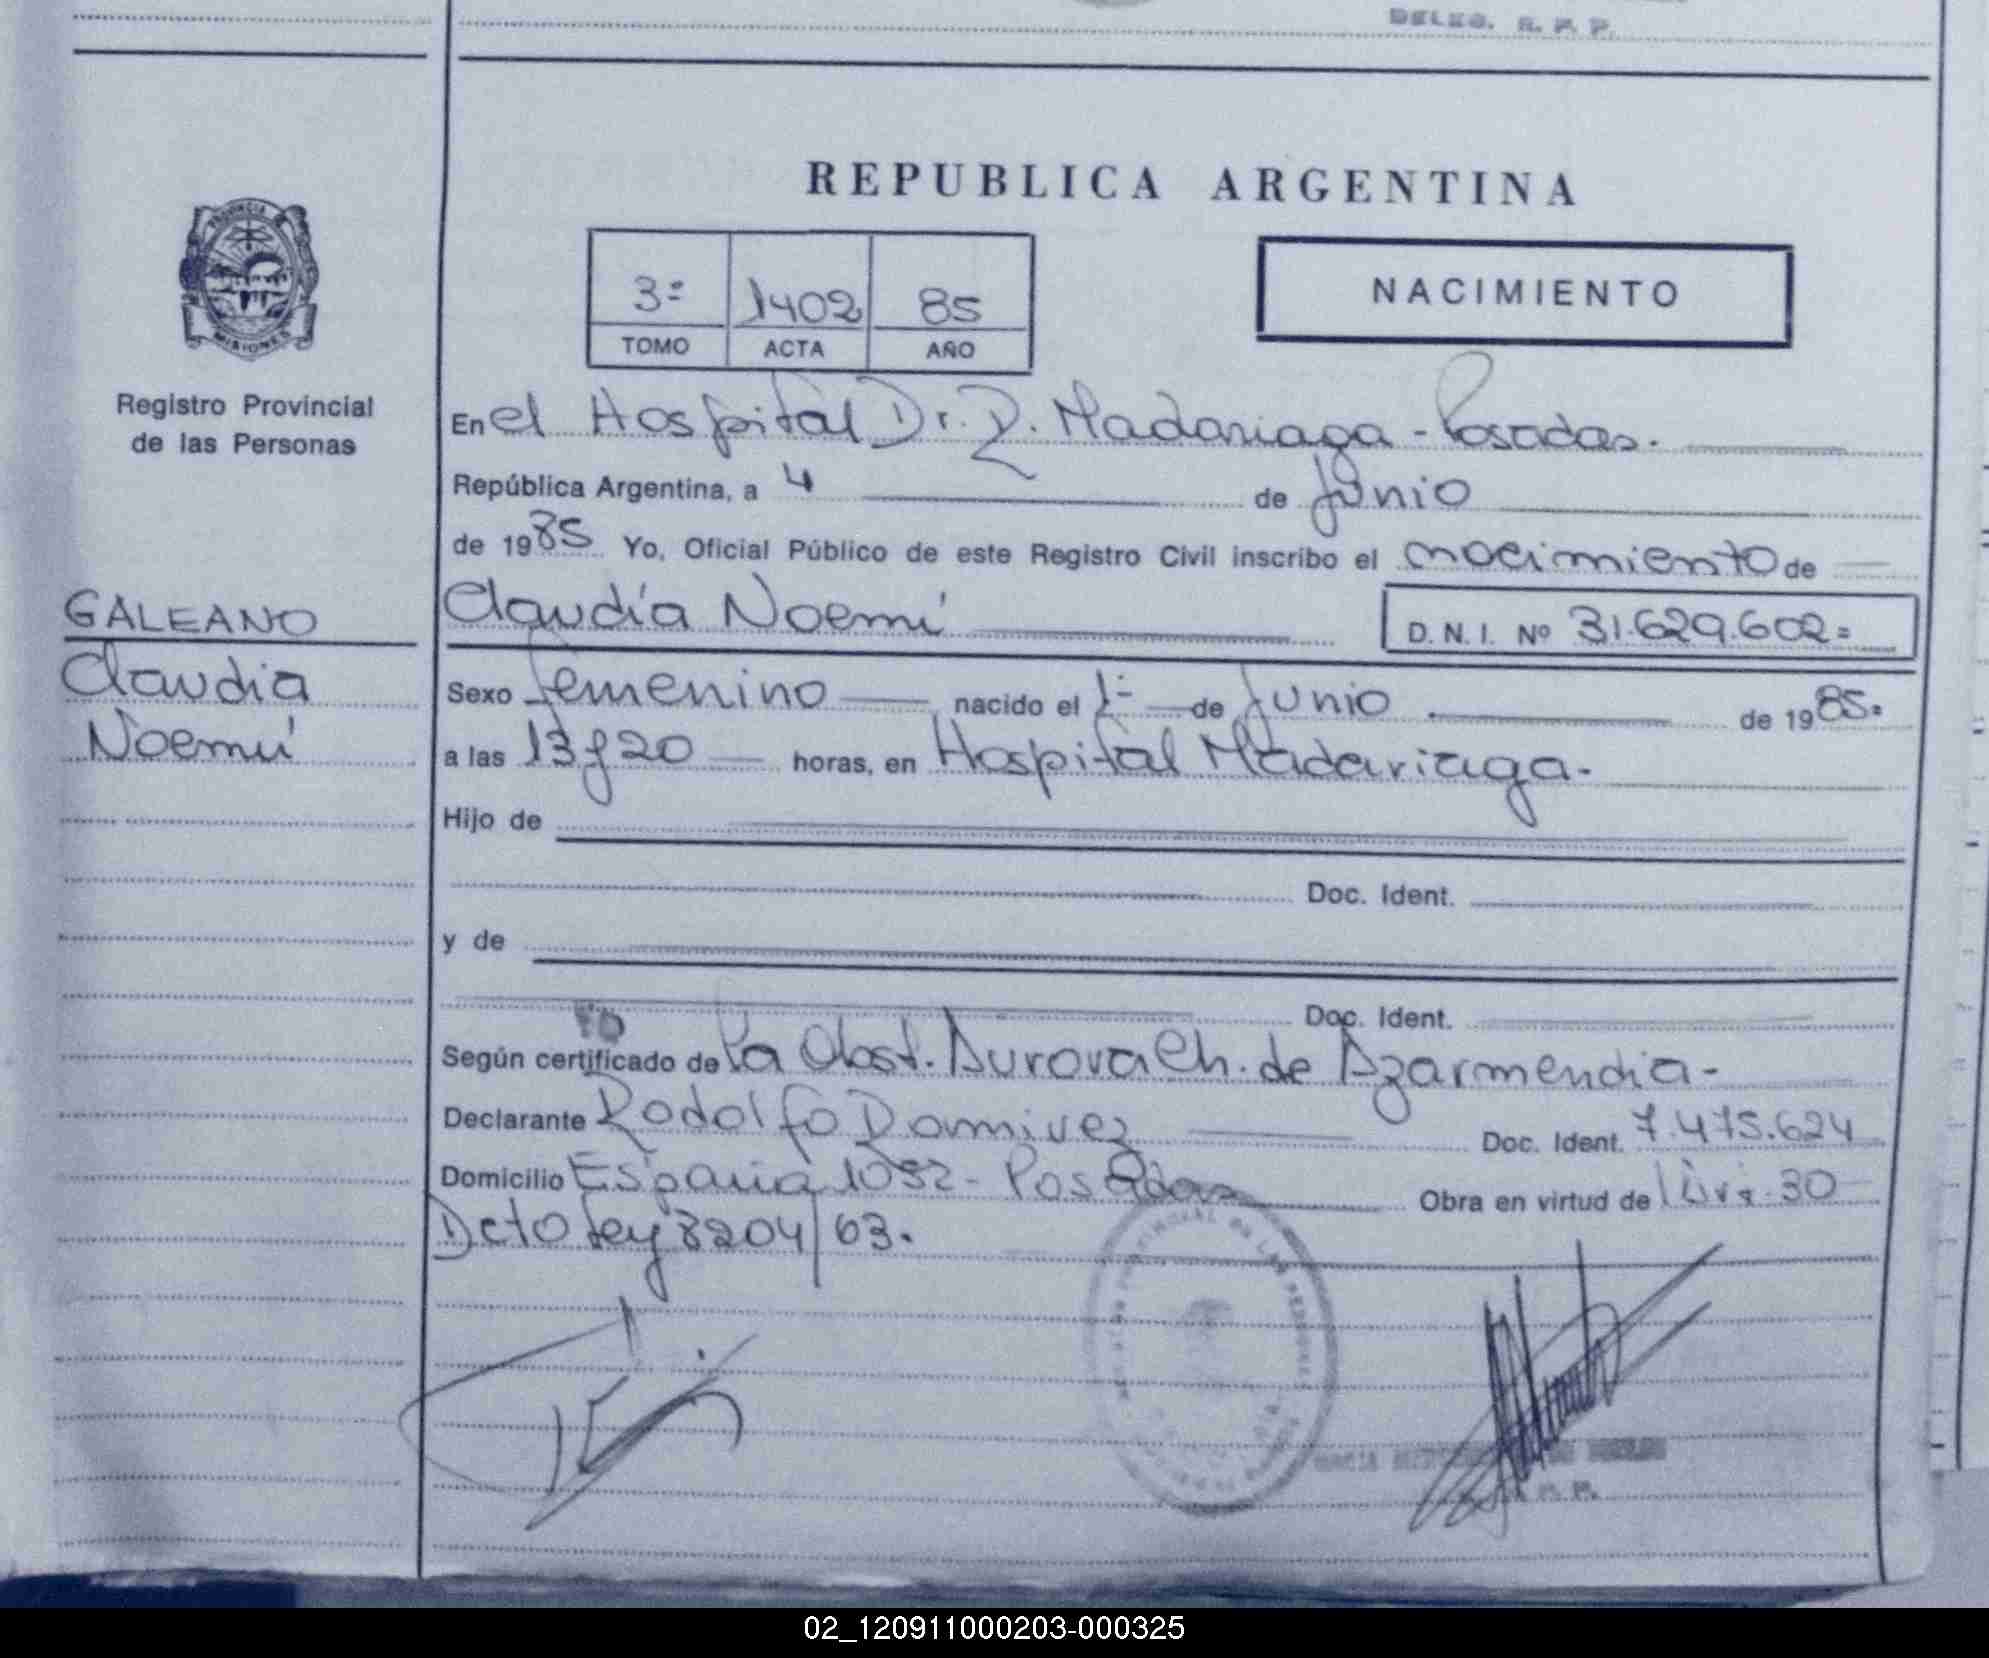 DELEG. R. P. P.
REPUBLICA ARGENTINA
PROVINCIA DE
MISIONES
Registro Provincial
de las Personas
3º 1402 85
TOMO ACTA AÑO
NACIMIENTO
En el Hospital Dr. R. Madariaga - Posadas.
República Argentina, a 4 de Junio
de 1985 Yo, Oficial Público de este Registro Civil inscribo el nacimiento de
GALEANO
Claudia
Noemí
Claudia Noemí D. N. I. Nº 31.629.602=
Sexo femenino nacido el 1º de Junio de 1985.
a las 13 y 20 horas, en Hospital Madariaga.
Hijo de
Doc. Ident.
y de
Doc. Ident.
Según certificado de la Obst. Aurora Ch. de Azarmendia-
Declarante Rodolfo Ramirez Doc. Ident. 7.475.624
Domicilio España 1052- Posadas Obra en virtud de 30
Dcto Ley 8204/63.
DE LAS PERSONAS
02_120911000203-000325